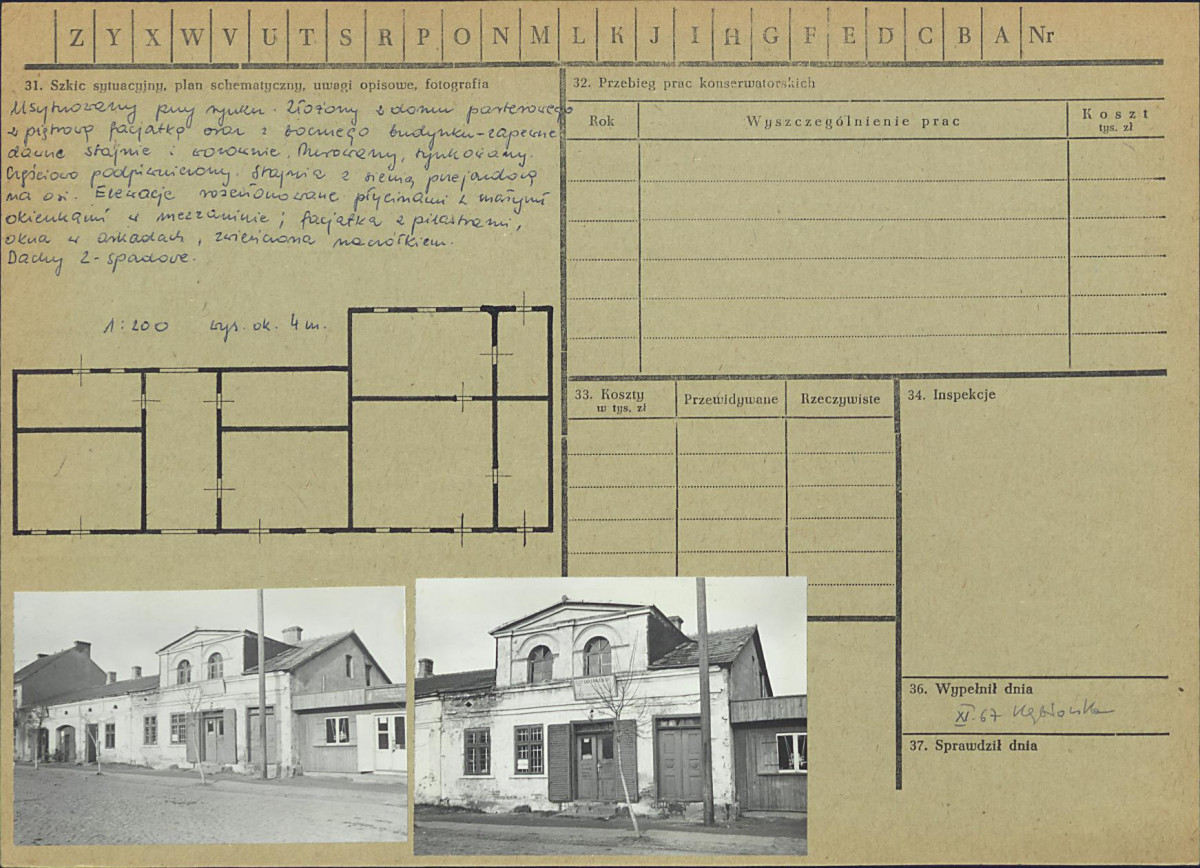 Z Y X W V U T S R P O N M L K J I H G F E D C B A Nr
31. Szkic sytuacyjny, plan schematyczny, uwagi opisowe, fotografia
Usytuowany przy rynku. Złożony z domu parterowego
z piętrową facjatką oraz z bocznego budynku-zapewne
dawne stajnie i wozownie. Murowany, tynkowany.
Częściowo podpiwniczony. Stajnia z sienią przejazdową
na osi. Elewacje rozczłonkowane płycinami z małymi
okienkami w mezzaninie; facjatka z pilastrami,
okna w arkadach, zwieńczona naczółkiem.
Dachy 2-spadowe.
1:200 wys. ok. 4 m.
32. Przebieg prac konserwatorskich
Rok
Wyszczególnienie prac
Koszt
tys. zł
33. Koszty
w tys. zł
Przewidywane
Rzeczywiste
34. Inspekcje
36. Wypełnił dnia
XI. 67
37. Sprawdził dnia